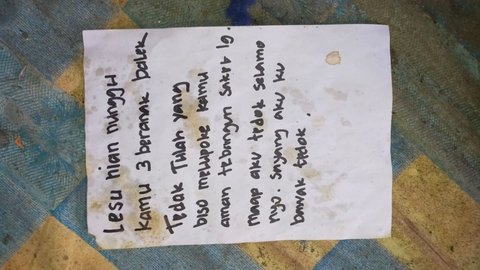 Lesu nian nunggu
kamu 3 beranak balek
Tidak Tulah yang
biso melupoke kamu
aman tebangun saket lg.
maap aku tidak selamo
nyo. sayang aku ku
bawak tidok.